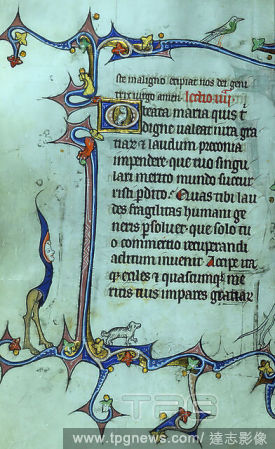 ste maligno eripiat nos dei geni
trix virgo amen. lectio iiii
O beata maria quis t
digne valeat iura gra
tiaꝝ et laudum preconia
impendere que tuo singu
lari merito mundo succur
risti perdito. Quas tibi lau
des fragilitas humani ge
neris persoluet que solo tu
o commertio recuperandi
aditum inuenit. Accipe ita
qꝫ exiles et quascumqꝫ me
ritis tuis impares gratiar
TPG
www.tpgnews.com/ 達志影像